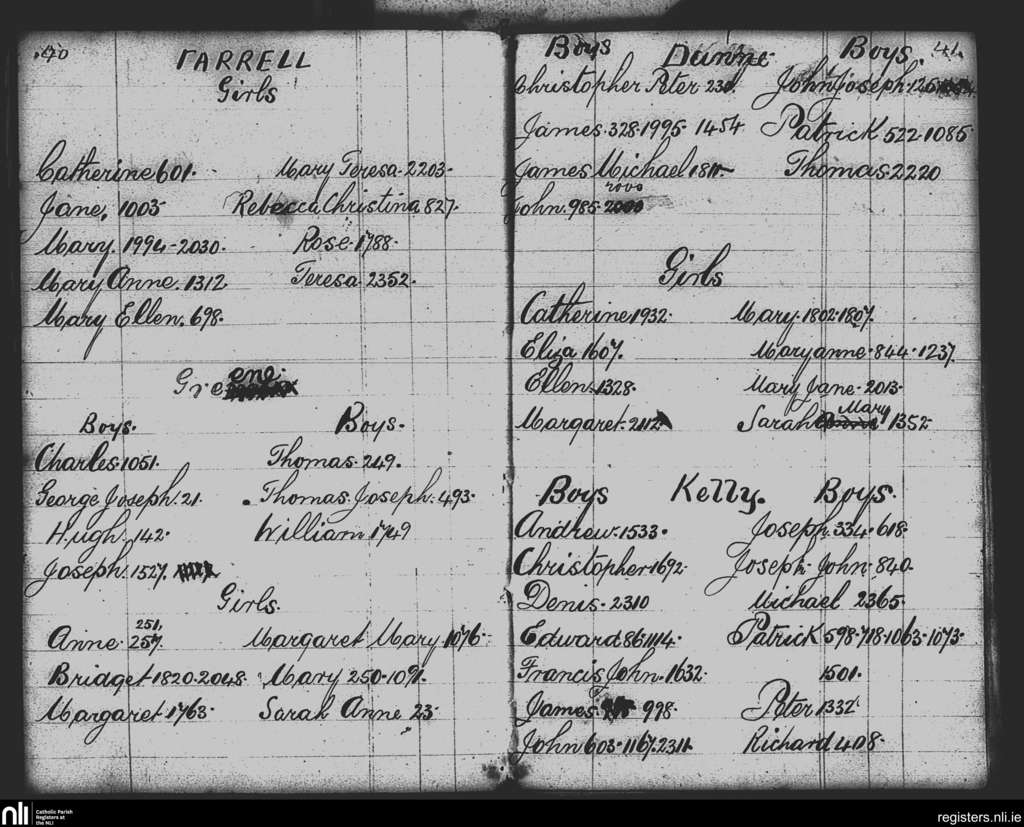 40
FARRELL
Girls
Catherine 601. Mary Teresa. 2203.
Jane, 1003 Rebecca Christina 827.
Mary. 1994-2030. Rose. 1788.
Mary Anne. 1312 Teresa. 2352.
Mary Ellen. 698.
Greene.
Boys. Boys.
Charles. 1051. Thomas. 249.
George Joseph. 21. Thomas. Joseph. 493.
Hugh. 142. William 1749
Joseph. 1527.
Girls.
251.
Anne. 257. Margaret Mary. 1076.
Bridget 1820. 2048. Mary 250. 1091.
Margaret 1763. Sarah Anne 23.
Boys Dunne Boys. 41.
Christopher Peter 230. John Joseph. 126
James. 328. 1995. 1454 Patrick 522. 1085
James Michael 1811. Thomas. 2220
2000
John. 985. 2000
Girls
Catherine 1932. Mary. 1802. 1807.
Eliza 1607. Maryanne. 844. 1237.
Ellen. 1328. Mary Jane. 2013.
Mary
Margaret. 2112 Sarah Anne 1352
Boys Kelly. Boys.
Andrew. 1533. Joseph. 334. 618.
Christopher 1692. Joseph John. 840.
Denis. 2310 Michael 2365.
Edward 86. 1114. Patrick 598. 718. 1063. 1073.
Francis John. 1632. 1501.
James. 998. Peter 1332
John 603. 1167. 2311. Richard 408.
nli Catholic Parish
Registers at
the NLI
registers.nli.ie